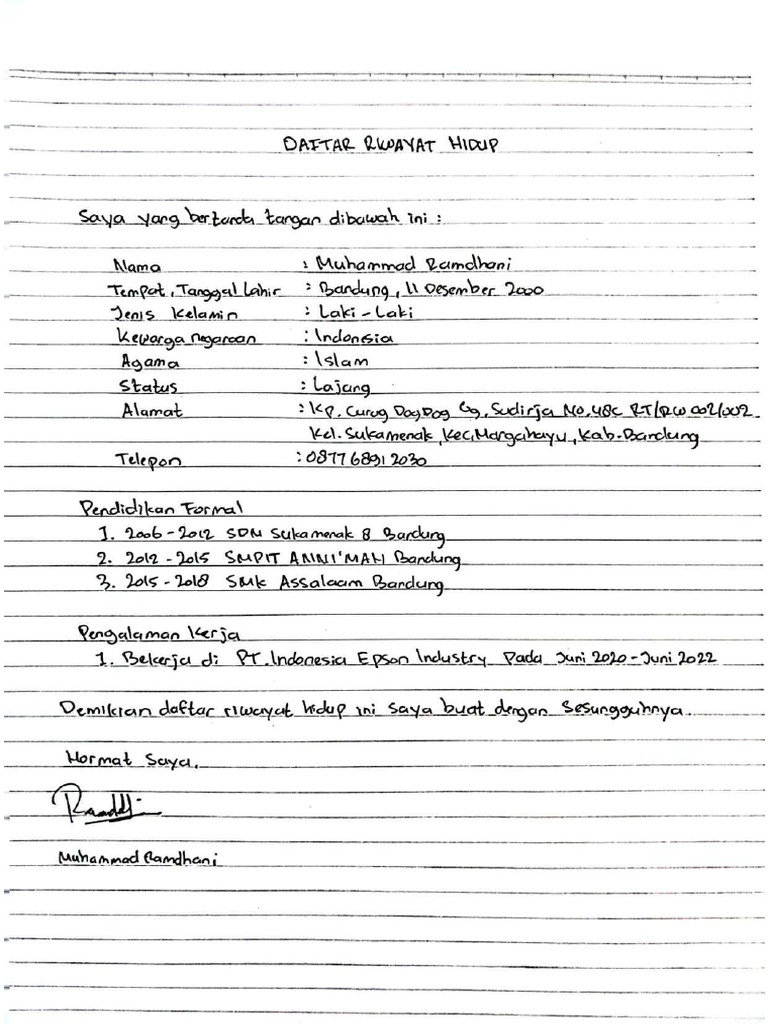 DAFTAR RIWAYAT HIDUP
Saya yang bertanda tangan dibawah ini :
Nama : Muhammad Ramdhani
Tempat, Tanggal Lahir : Bandung, 11 Desember 2000
Jenis Kelamin : Laki - Laki
Kewarganegaraan : Indonesia
Agama : Islam
Status : Lajang
Alamat : Kp. Curug DogDog Gg. Sudirja No. 48C RT/RW 002/002
Kel. Sukamenak, Kec. Margahayu, Kab. Bandung
Telepon : 087768912030
Pendidikan Formal
1. 2006 - 2012 SDN Sukamenak 8 Bandung
2. 2012 - 2015 SMPIT ANNI'MAH Bandung
3. 2015 - 2018 SMK Assalaam Bandung
Pengalaman Kerja
1. Bekerja di PT. Indonesia Epson Industry Pada Juni 2020 - Juni 2022
Demikian daftar riwayat hidup ini saya buat dengan sesungguhnya.
Hormat Saya,
Muhammad Ramdhani